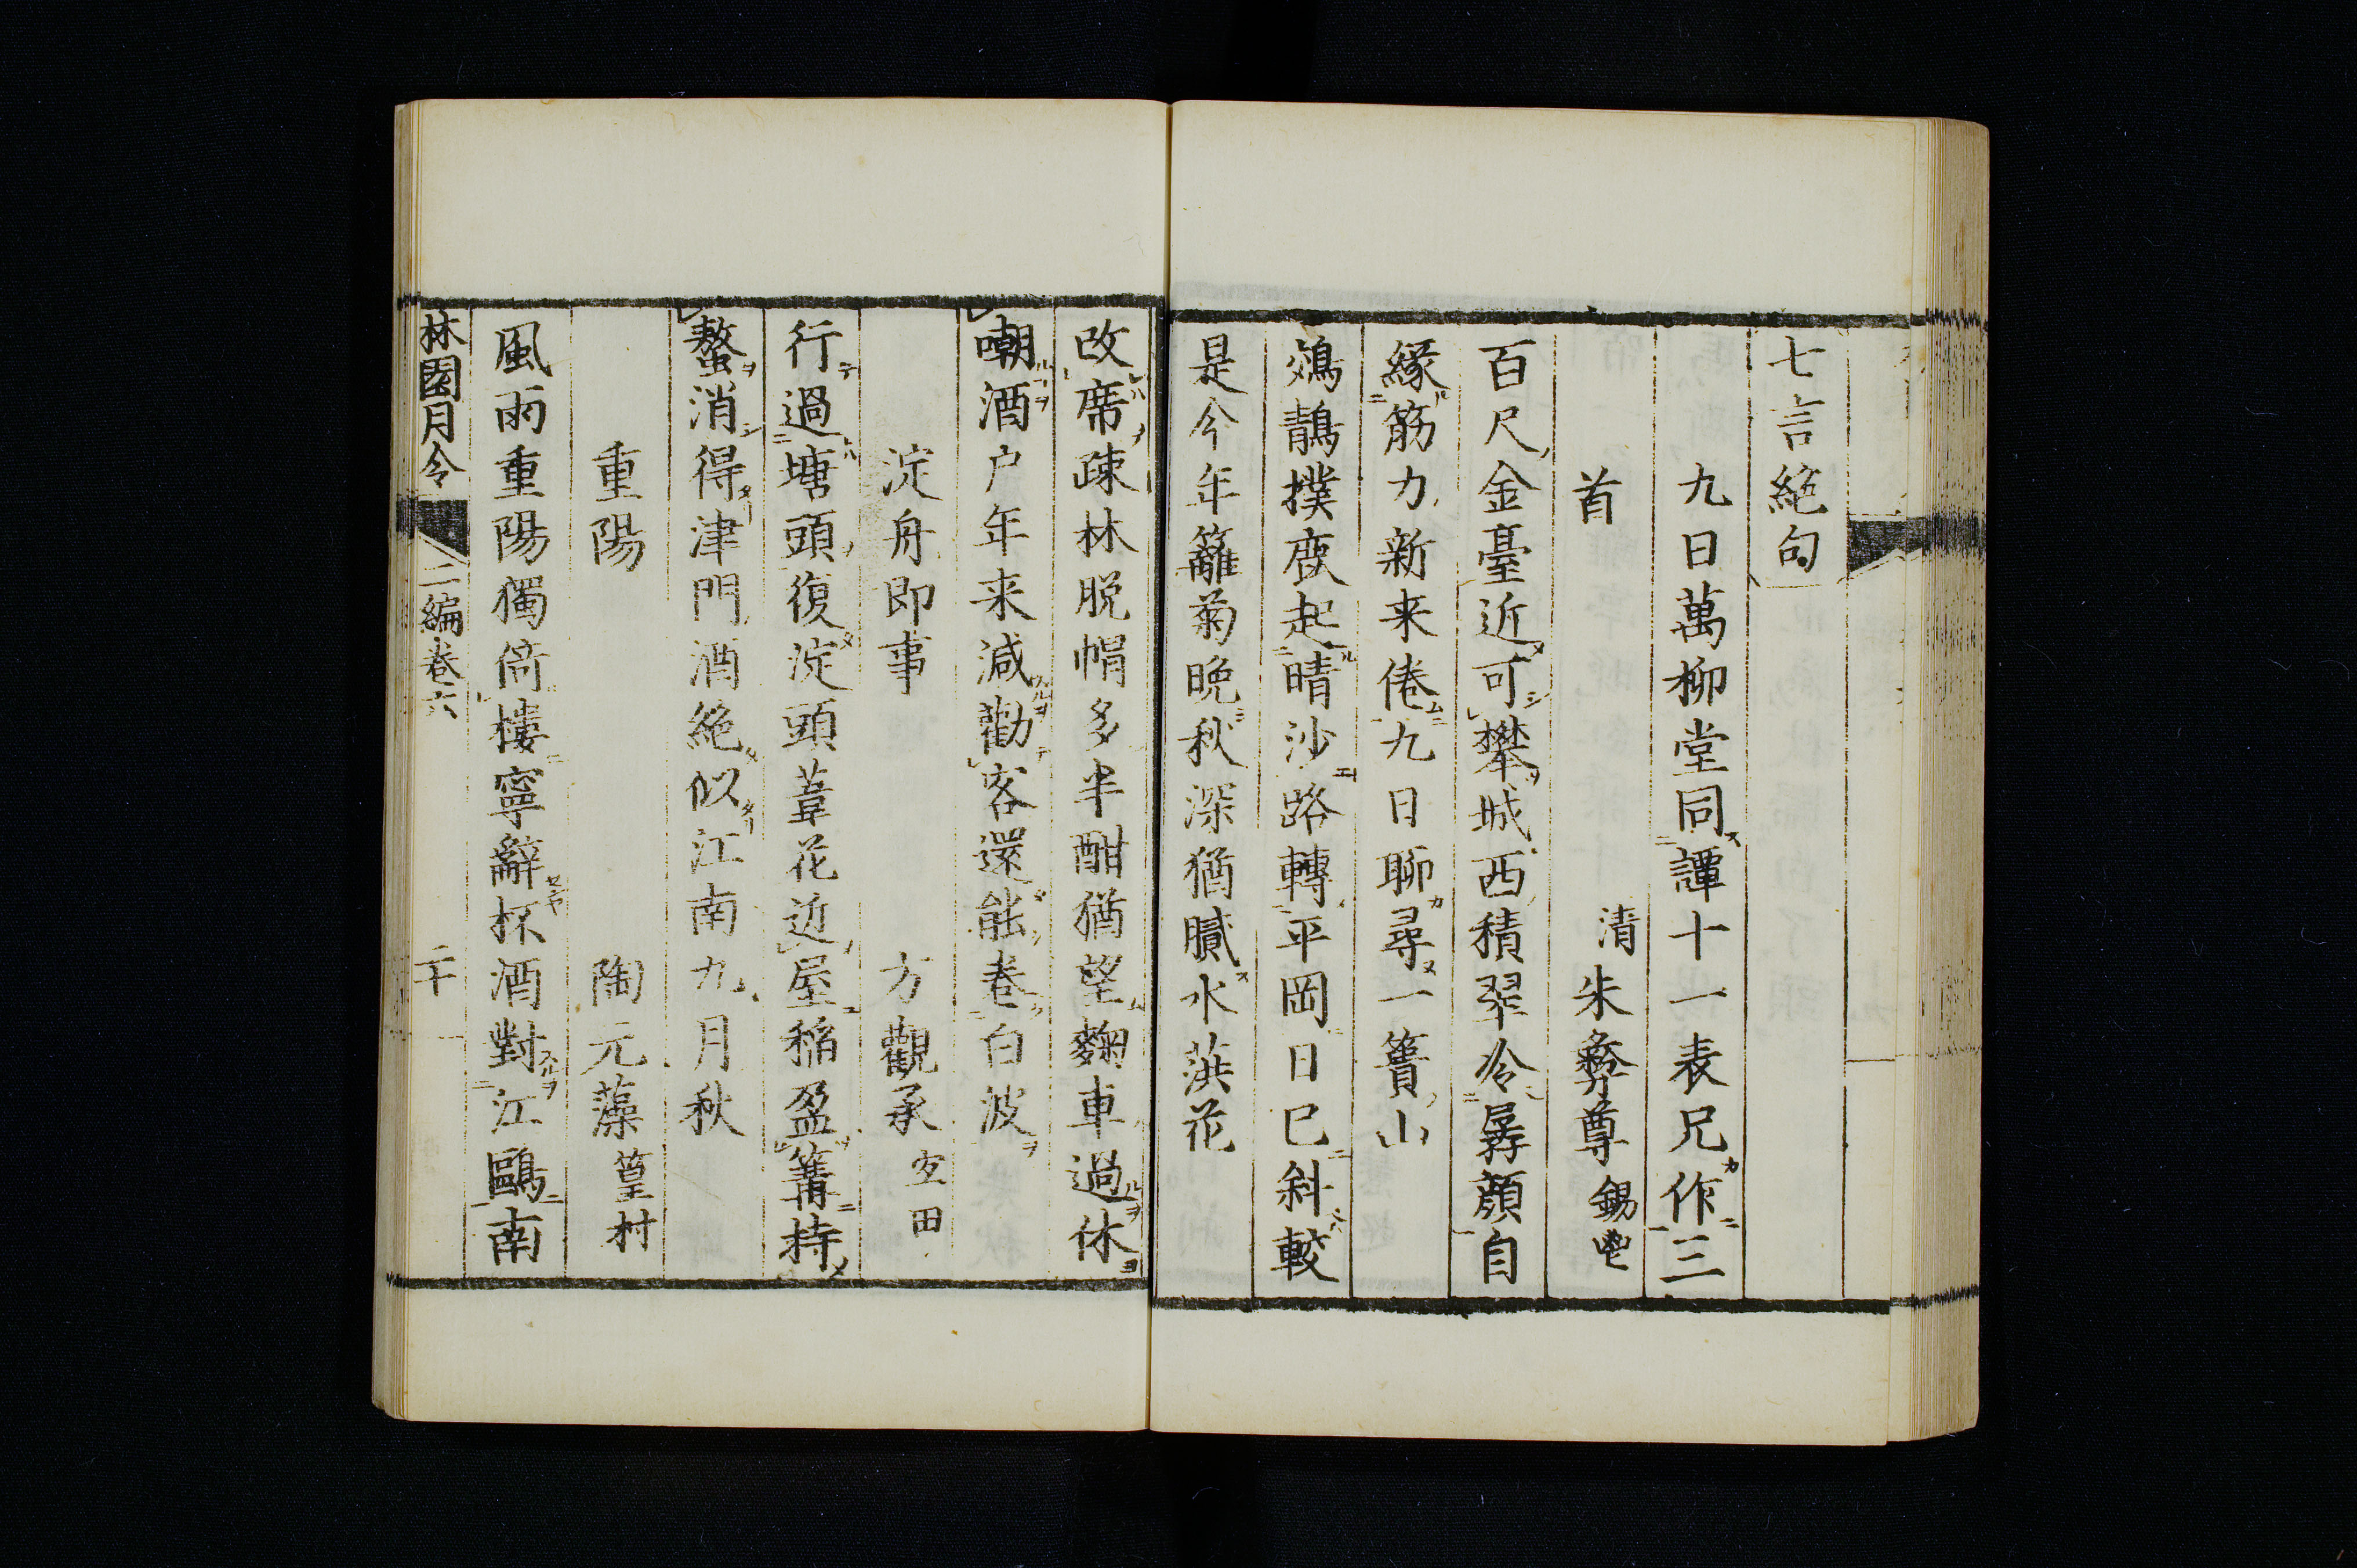 七言絶句
九日萬柳堂同譚十一表兄作三
首
清朱彝尊錫鬯
百尺金臺近可攀城西積翠冷孱顔自
緣筋力新来倦九日聊尋一簣山
鵁鶄撲鹿起晴沙路轉平岡日已斜較
是今年籬菊晩秋深猶賸水葓花
改席疎林脱帽多半酣猶望麴車過休
嘲酒户年来減勸客還能卷白波
淀舟即事
方觀承宜田
行過塘頭復淀頭葦花近屋稲盈篝持
螯消得津門酒絶似江南九月秋
重陽
陶元藻篁村
風雨重陽獨倚樓寧辭杯酒對江鷗南
林園月令
二編卷六
二十